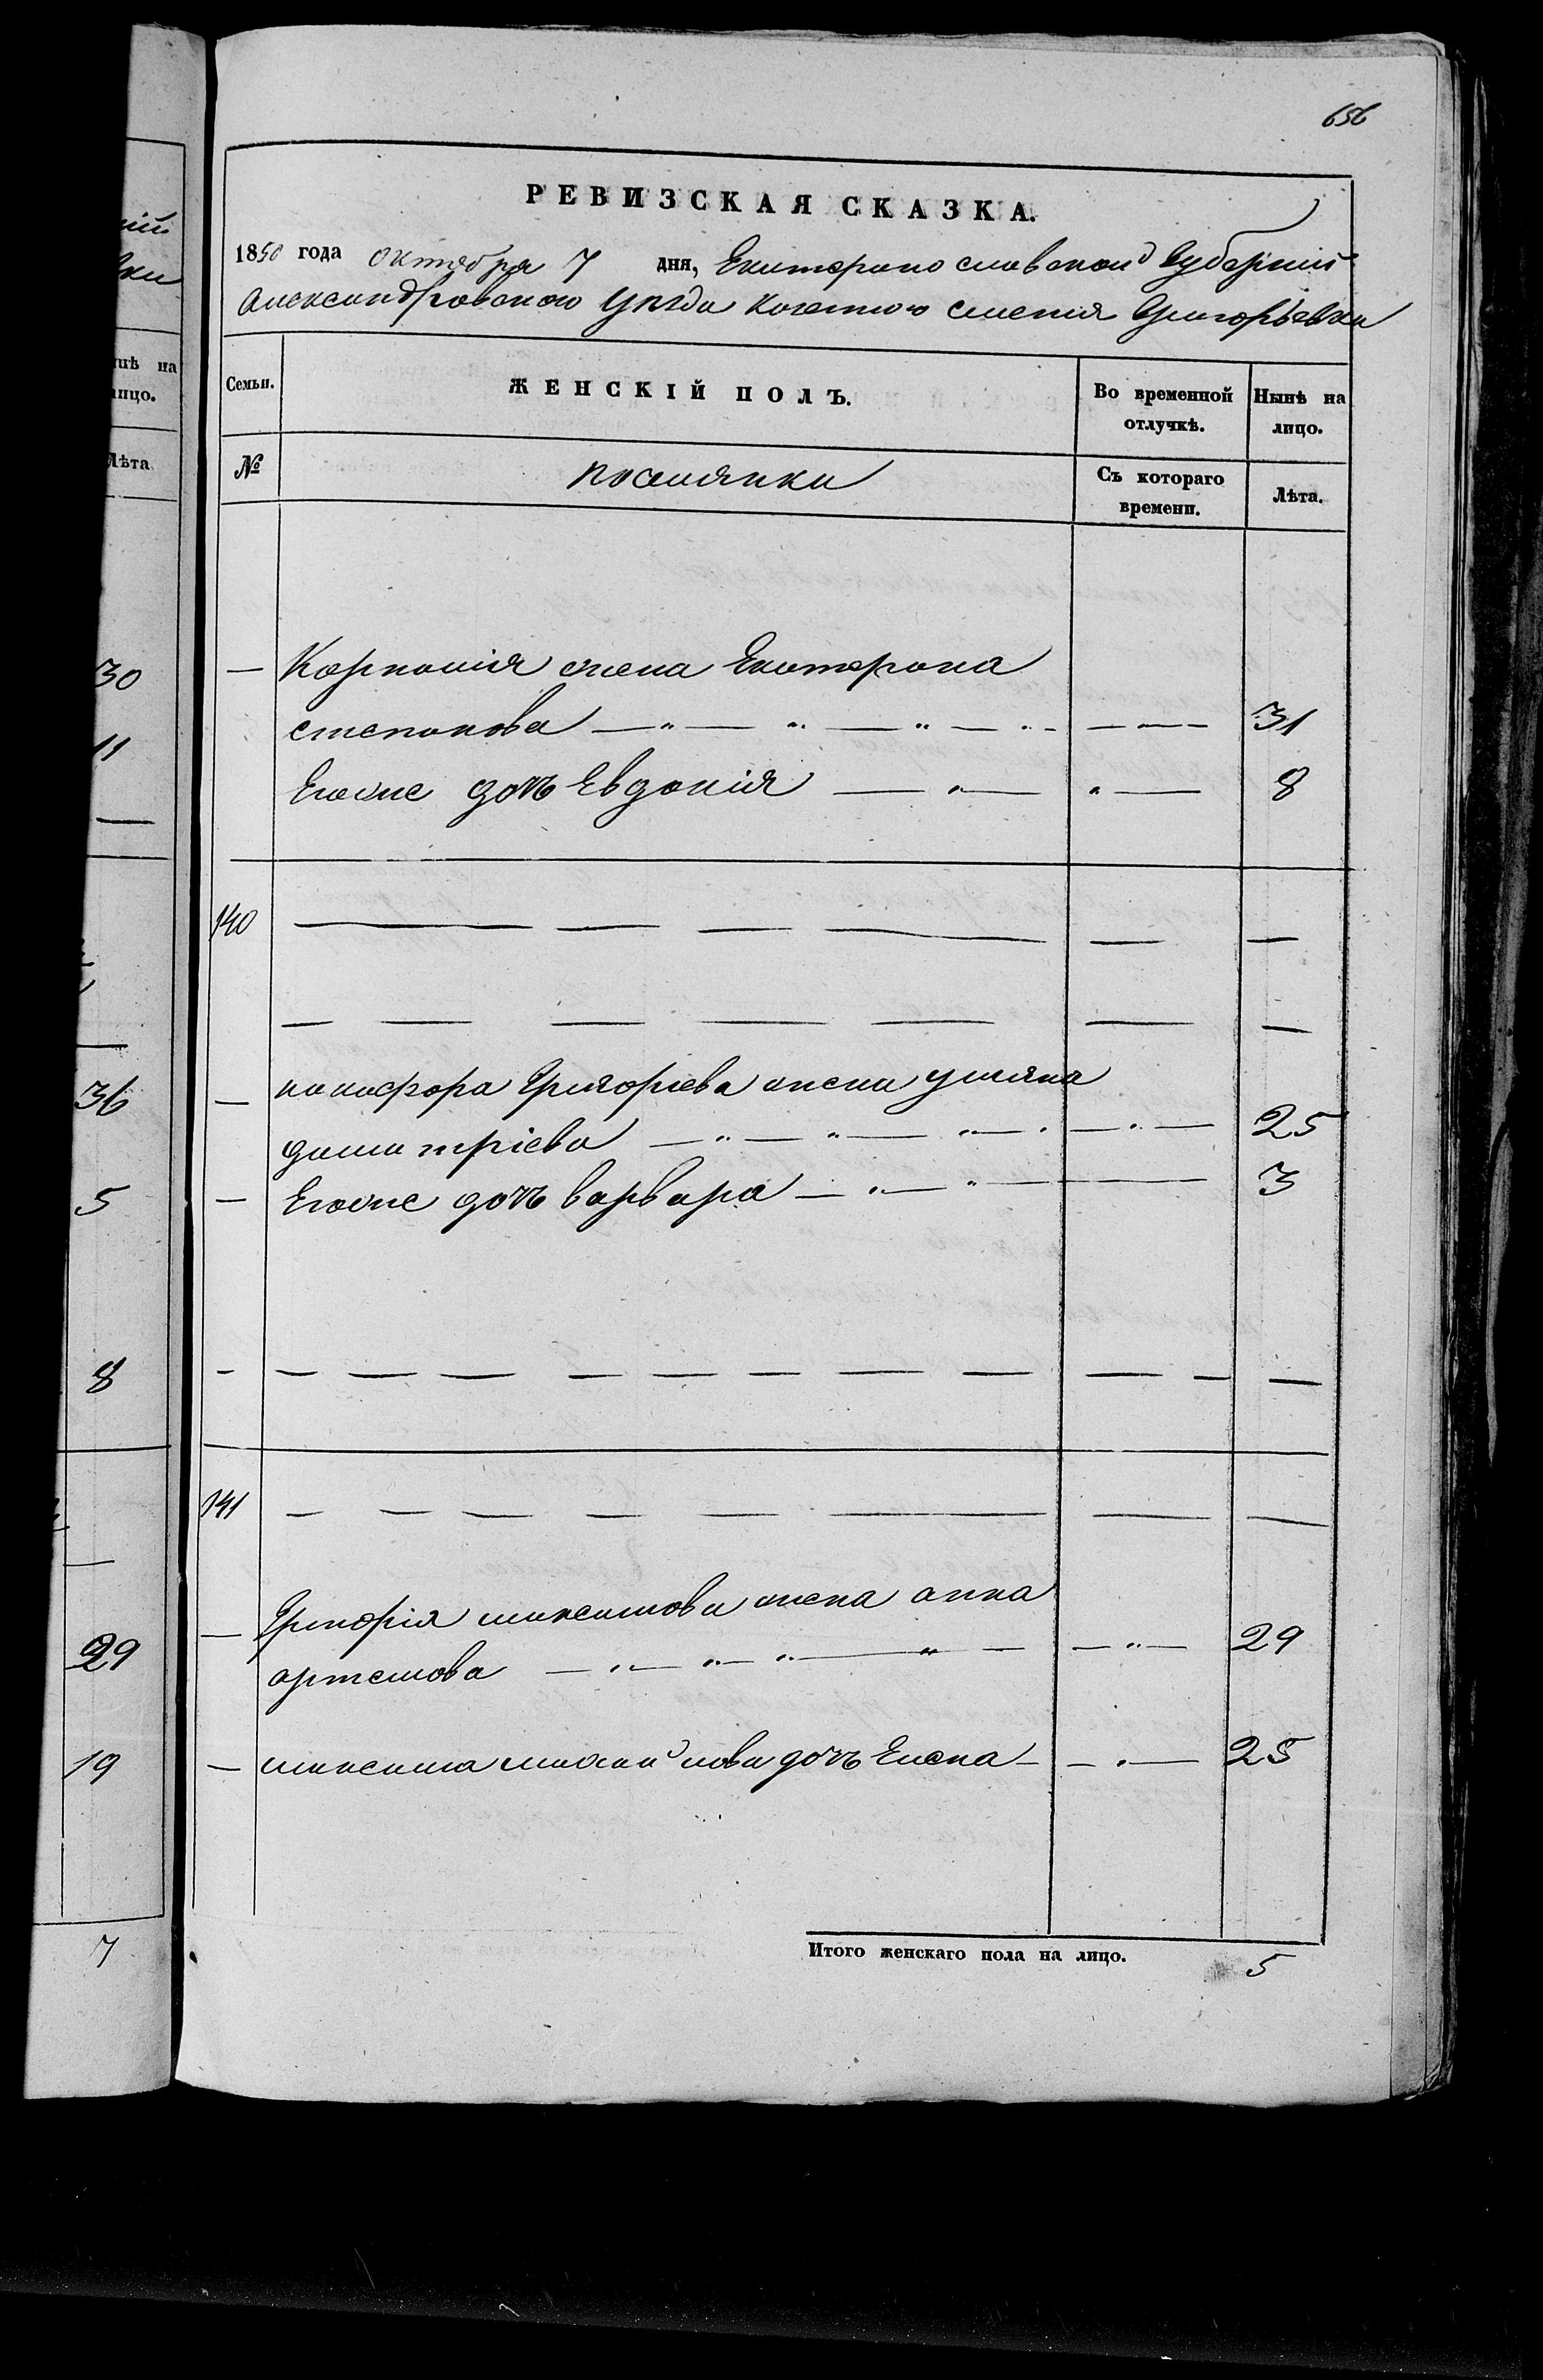 656
РЕВИЗСКАЯ СКАЗКА.
1850 года октября 7 дня, Екатеринославской Губерніи
Александровского Уезда казенного селенія Григорьевки
Семьи. ЖЕНСКІЙ ПОЛЪ. Во временной отлучкѣ. Нынѣ на лицо.
№ поселянки Съ котораго времени. Лѣта.
— жена Екатерина
степанова — 31
Егоже дочь Евдокия — 8
140 — — —
— — —
— никифора Григориева жена ульяна
димитріева — 25
— Егоже дочь варвара — 3
— — — —
141 — — —
— Григорія максимова жена анна
артемова — 29
— максима михайлова дочь Елена — 25
Итого женскаго пола на лицо. 5
ній
вки
нѣ на
лицо.
Лѣта
30
11
—
36
5
8
29
19
7